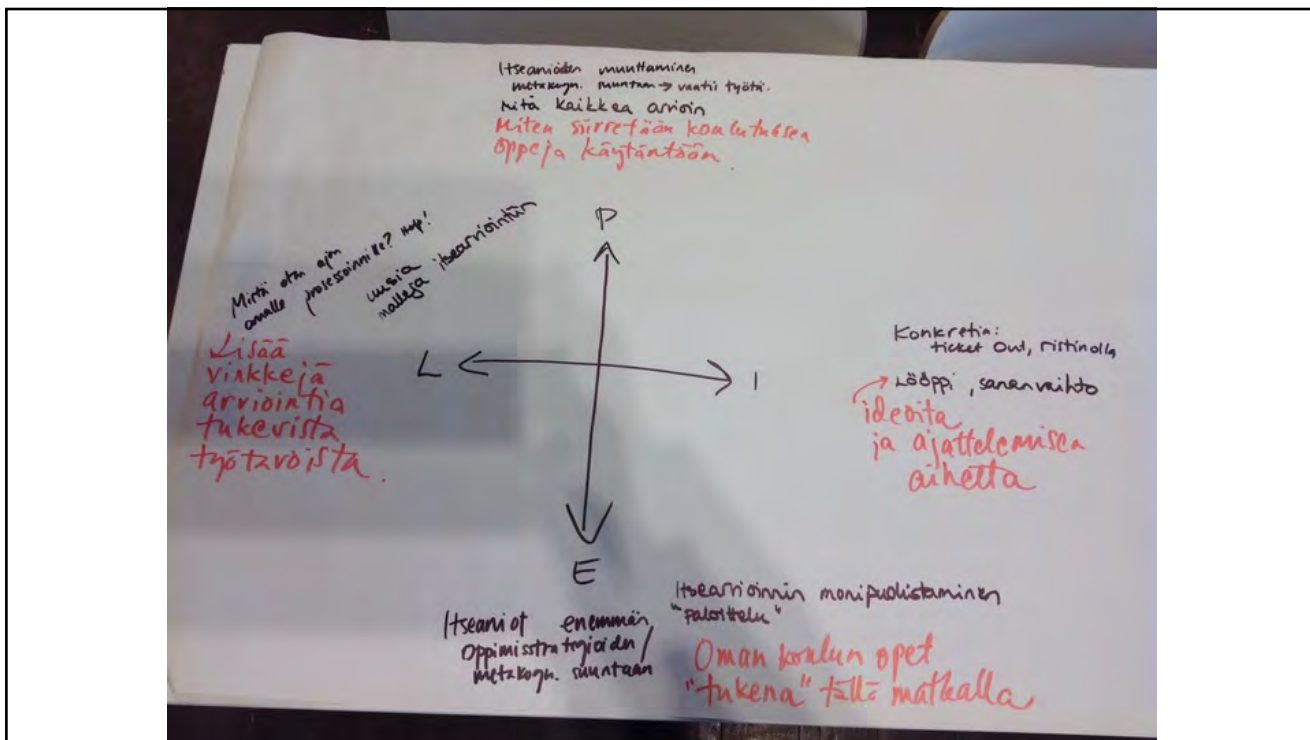 Itsearvioiden muuttaminen
metakogn. suuntaan → vaatii työtä.
Mitä kaikkea arvioin
Miten siirretään koulutuksen
oppeja käytäntöön.
Mistä otan ajan
omalle prosessoinnille? Help!
uusia
malleja itsearviointiin
P
Lisää
vinkkejä
arviointia
tukevista
työtavoista.
L
I
Konkretia:
ticket out, ristinolla
Lööppi, sananvaihto
ideoita
ja ajattelemisen
aihetta
E
Itsearviot enemmän
oppimisstrategioiden /
metakogn. suuntaan
Itsearvioinnin monipuolistaminen
"paloittelu"
Oman koulun opet
"tukena" tällä matkalla